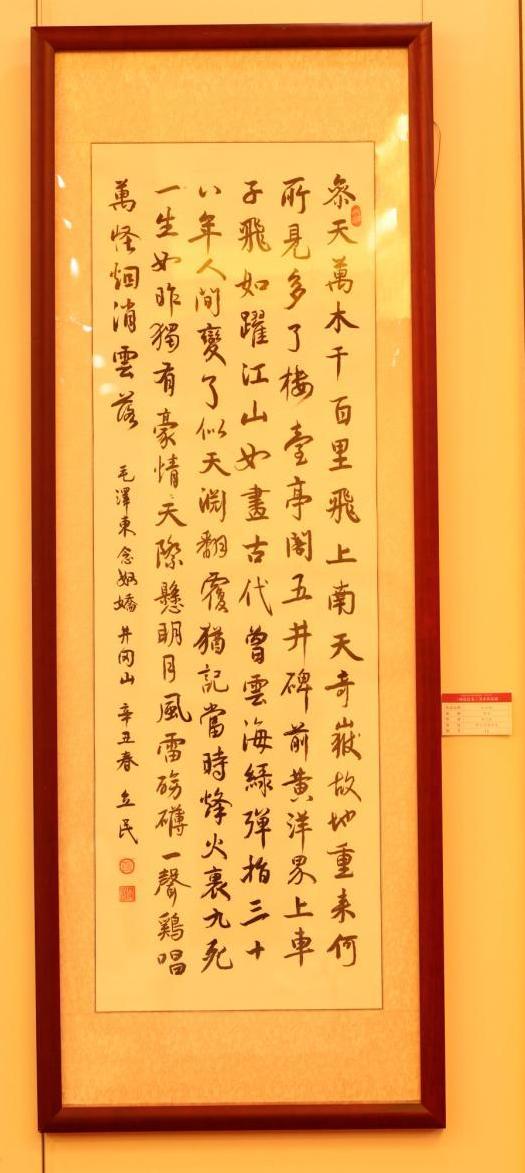 参天萬木千百里飛上南天奇嶽故地重来何
所見多了楼臺亭閣五井碑前黄洋界上車
子飛如躍江山如畫古代曾雲海緑弹指三十
八年人間變了似天渊翻覆猶記當時烽火裏九死
一生如昨獨有豪情天際懸明月風雷磅礴一聲鷄唱
萬怪烟消雲落 毛澤東念奴嬌井岡山 辛丑春 立民